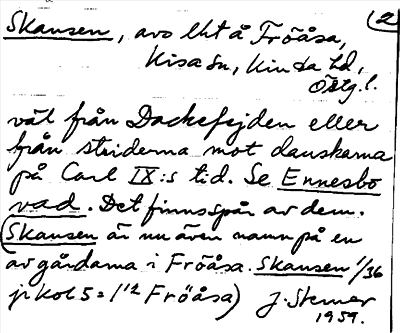 Skansen, avs lht å Fröåsa, (2
Kisa sn, Kinda hd,
Östg. l.
väl från Dackefejden eller
från striderna mot danskarna
på Carl IX:s tid. Se Ennesbo
vad. Det finns spår av dem.
(Skansen är nu även namn på en
av gårdarna i Fröåsa. Skansen 1/36
jr kol 5 = 1/2 Fröåsa) J. Sterner
1959.